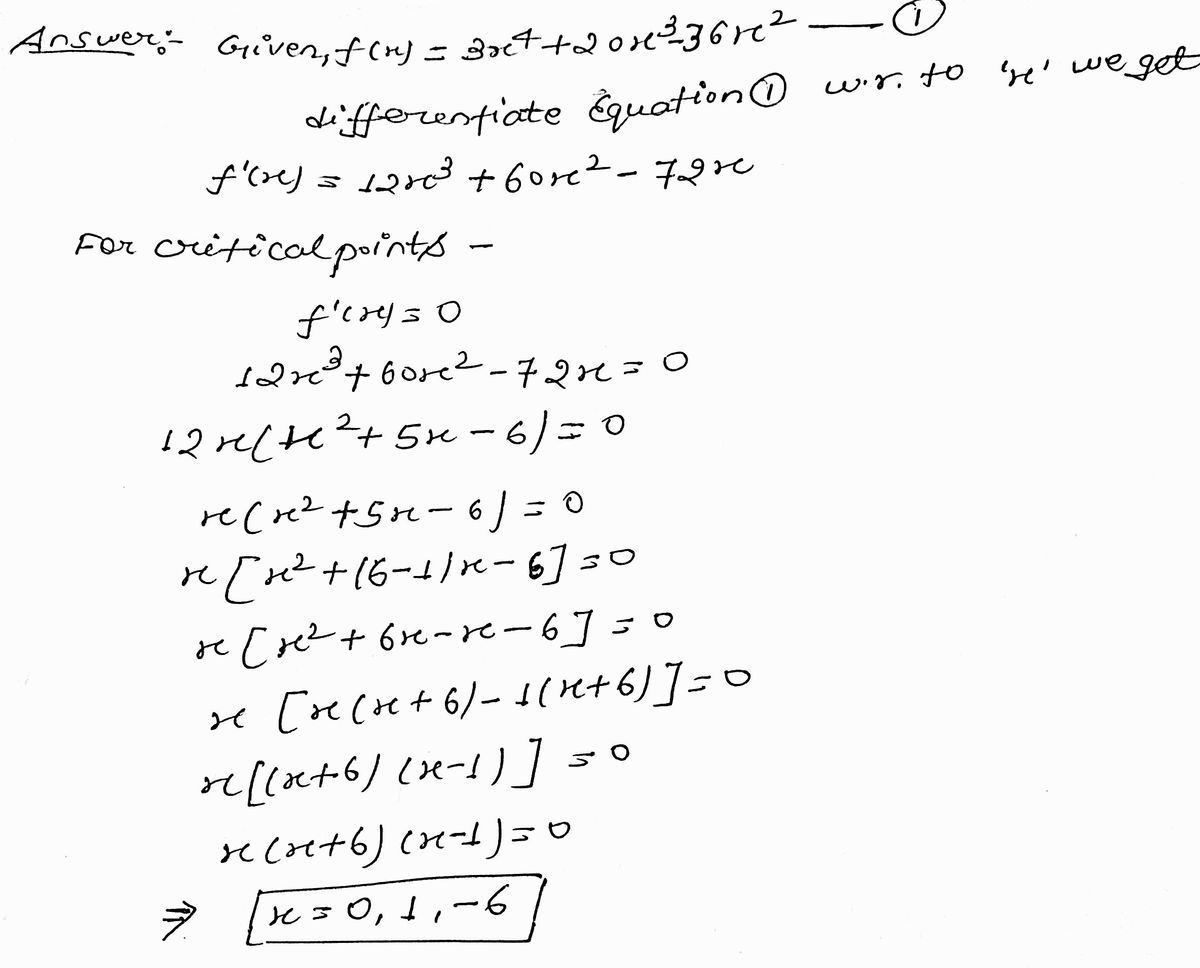 Answer:- Given, f(x) = 3x⁴+20x³-36x² — ①
differentiate Equation ① w.r. to 'x' we get
f'(x) = 12x³ + 60x² - 72x
For critical points -
f'(x) = 0
12x³ + 60x² - 72x = 0
12x(x² + 5x - 6) = 0
x(x² + 5x - 6) = 0
x[x² + (6-1)x - 6] = 0
x[x² + 6x - x - 6] = 0
x[x(x+6) - 1(x+6)] = 0
x[(x+6) (x-1)] = 0
x(x+6) (x-1) = 0
⇒ x = 0, 1, -6